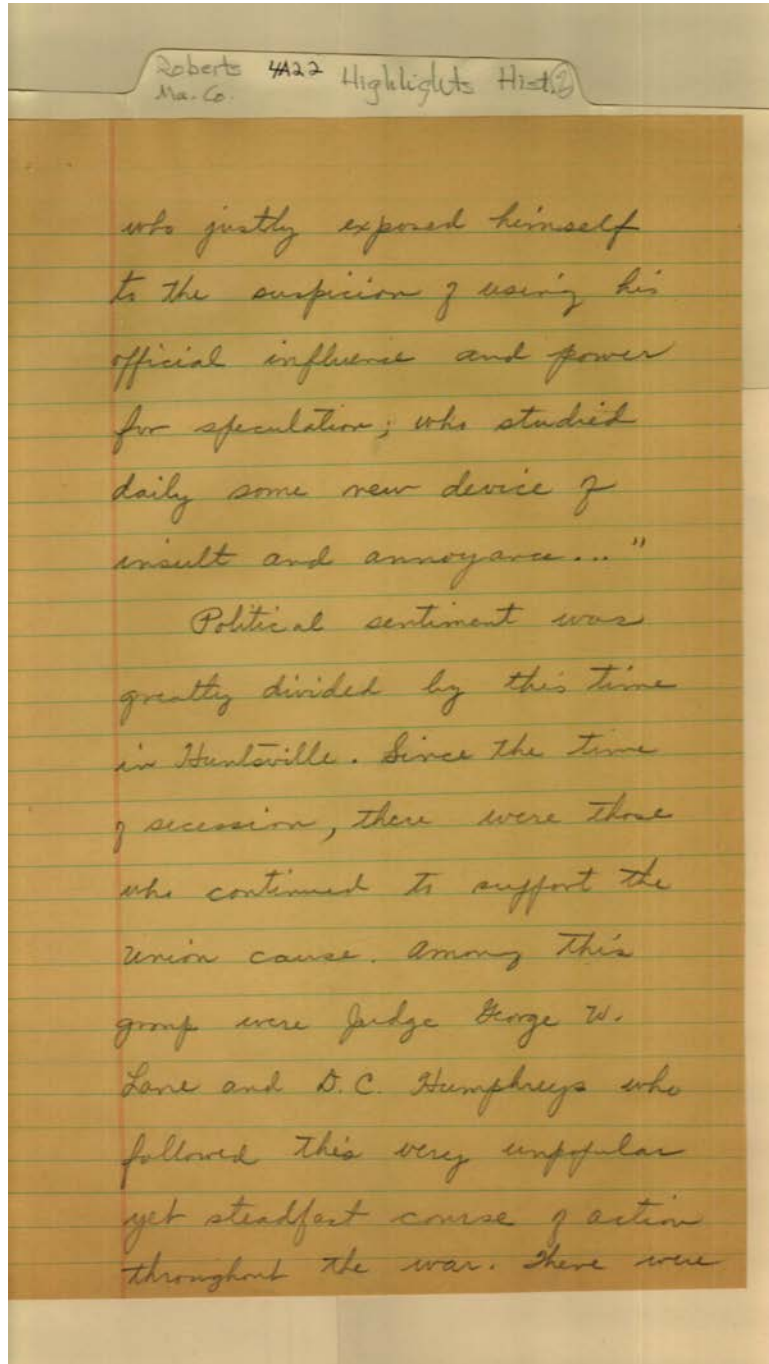 Roberts 4A22 Highlights Hist. 2
Ma. Co.
who justly exposed himself
to the suspicion of using his
official influence and power
for speculation; who studied
daily some new device of
insult and annoyance..."
Political sentiment was
greatly divided by this time
in Huntsville. Since the time
of secession, there were those
who continued to support the
Union cause. Among this
group were Judge George W.
Lane and D.C. Humphreys who
followed this very unpopular
yet steadfast course of action
throughout the war. There were